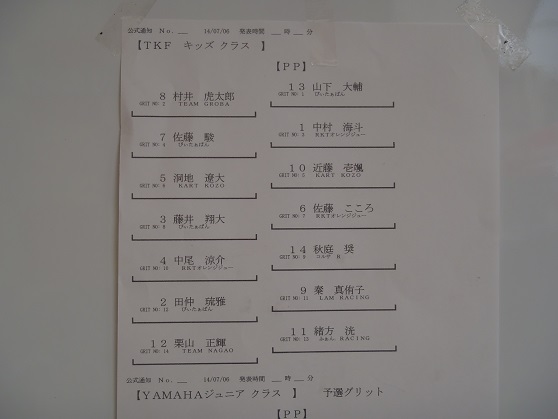 公式通知 No. __ 14/07/06 発表時間 __時__分
【TKF キッズ クラス 】
【PP】
13 山下 大輔
GRIT NO: 1 ぴぃたぁぱん
8 村井 虎太郎
GRIT NO: 2 TEAM GROBA
1 中村 海斗
GRIT NO: 3 RKTオレンジジュー
7 佐藤 駿
GRIT NO: 4 ぴぃたぁぱん
10 近藤 壱颯
GRIT NO: 5 KART KOZO
5 洞地 遼大
GRIT NO: 6 KART KOZO
6 佐藤 こころ
GRIT NO: 7 RKTオレンジジュー
3 藤井 翔大
GRIT NO: 8 ぴぃたぁぱん
14 秋庭 奨
GRIT NO: 9
4 中尾 涼介
GRIT NO: 10 RKTオレンジジュー
9 秦 真侑子
GRIT NO: 11 LAM RACING
2 田仲 琉雅
GRIT NO: 12 ぴぃたぁぱん
11 緒方 洸
GRIT NO: 13 ふぁん RACING
12 栗山 正輝
GRIT NO: 14 TEAM NAGAO
公式通知 No. __ 14/07/06 発表時間 __時__分
【YAMAHAジュニア クラス 】 予選グリット
【PP】